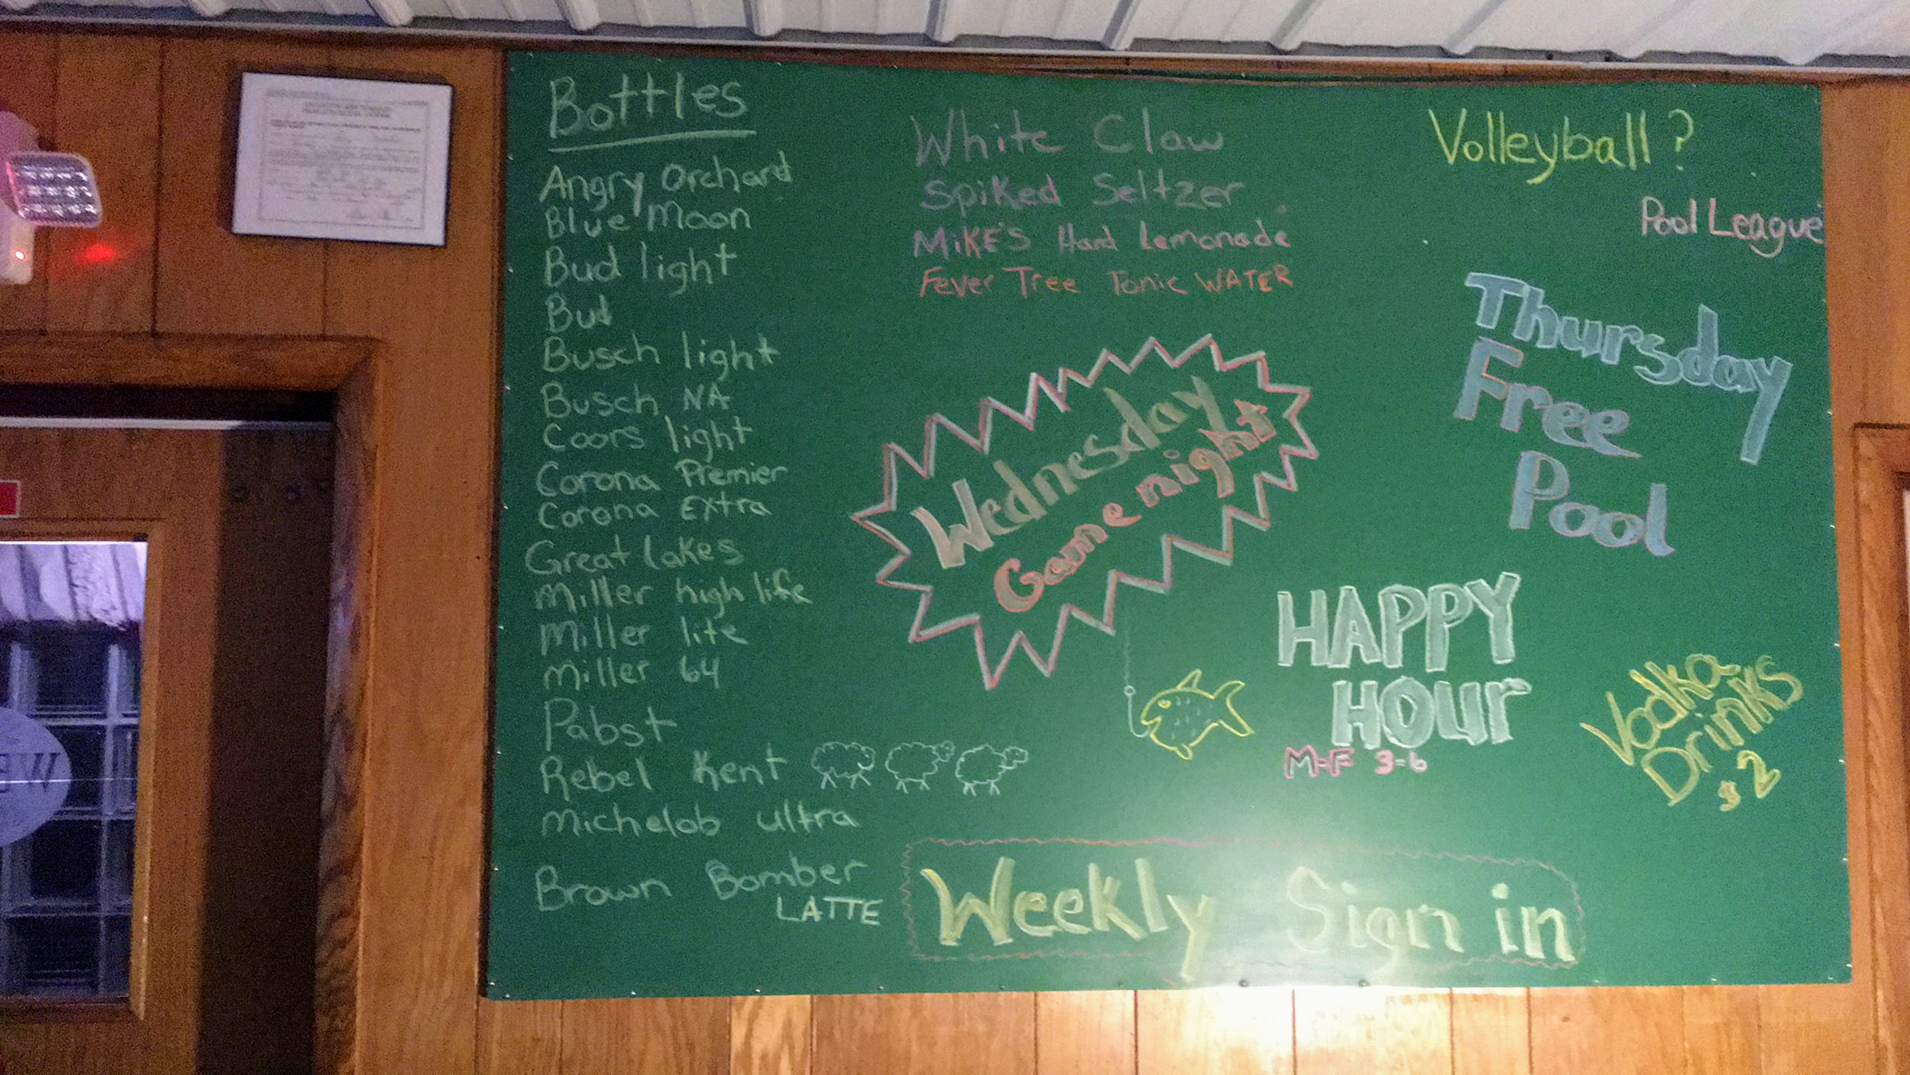 Bottles
Angry Orchard
Blue Moon
Bud light
Bud
Busch light
Busch NA
Coors light
Corona Premier
Corona Extra
Great lakes
Miller high life
Miller lite
Miller 64
Pabst
Rebel Kent
Michelob ultra
Brown Bomber
LATTE
White Claw
Spiked Seltzer
MiKE'S Hard Lemonade
Fever Tree Tonic WATER
Wednesday
Game night
Volleyball?
Pool League
Thursday
Free
Pool
HAPPY
HOUr
M-F 3-6
Vodka
Drinks
$2
Weekly Sign in